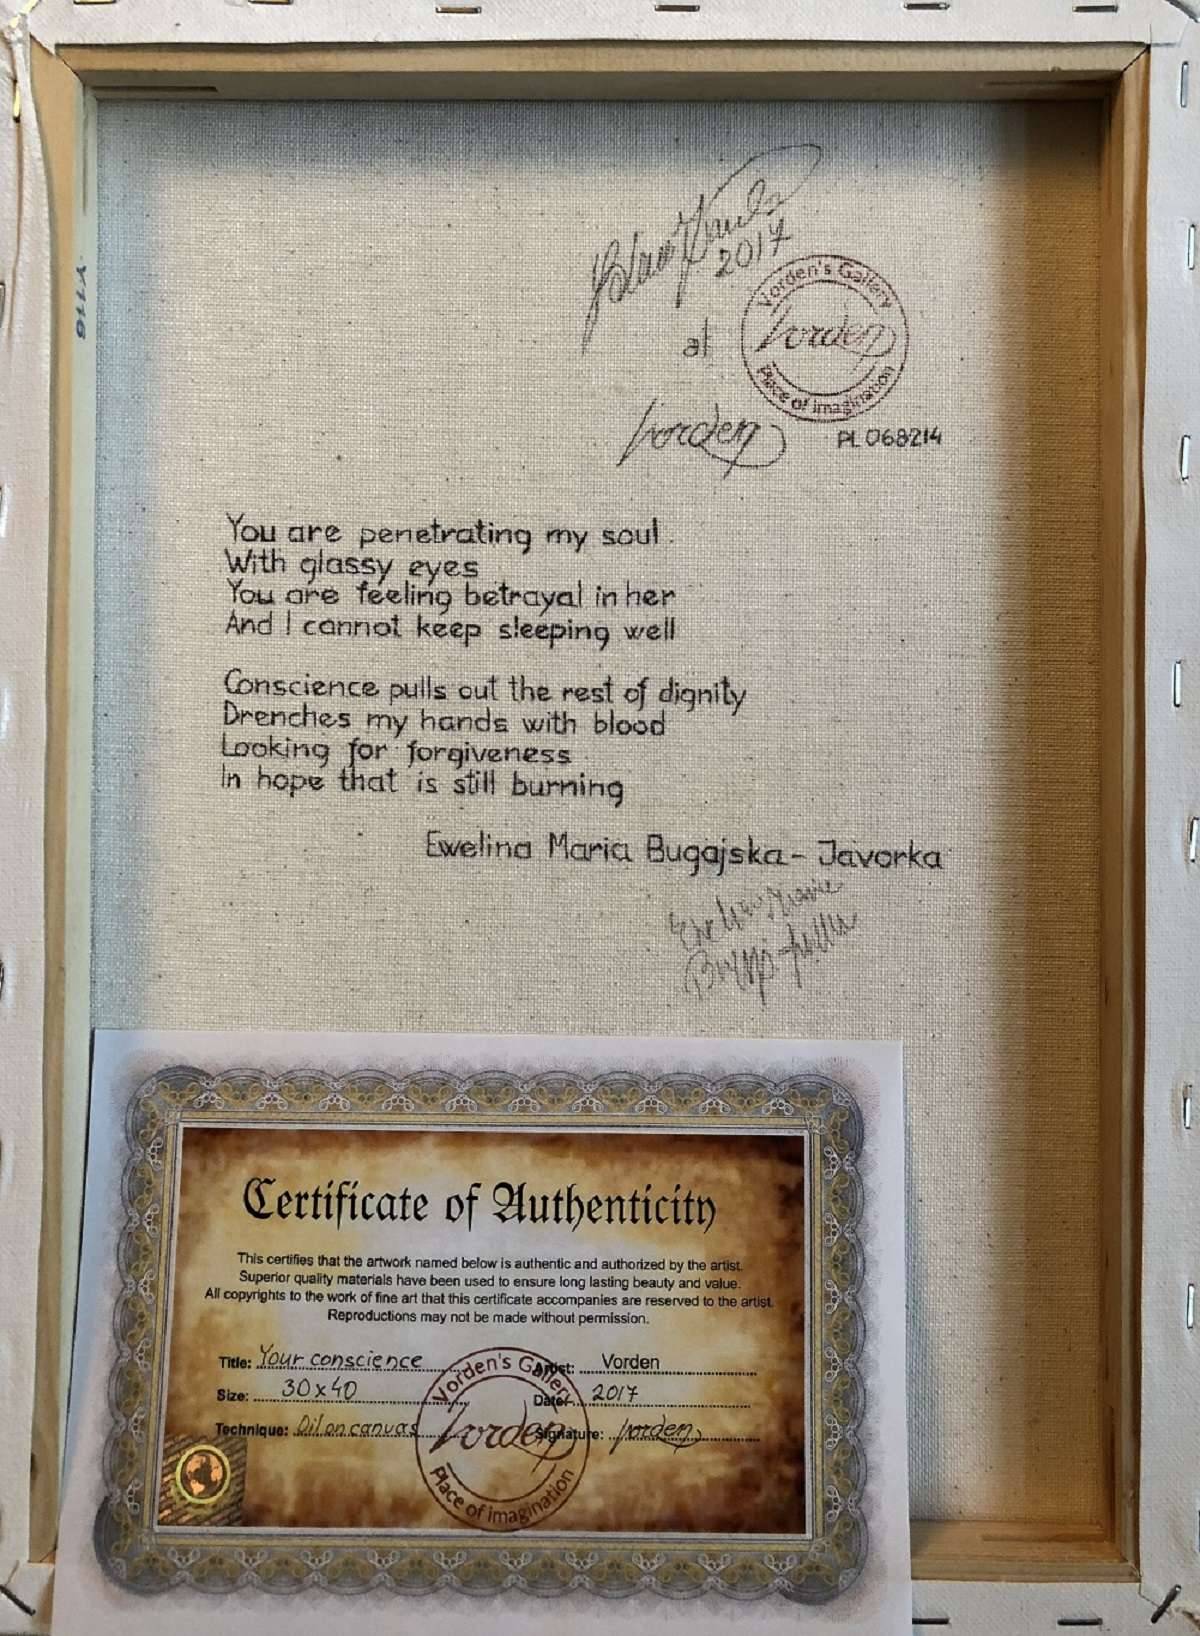 2017
at
Vorden's Gallery
Vorden
Place of imagination
Vorden
PL 068214
You are penetrating my soul
With glassy eyes
You are feeling betrayal in her
And I cannot keep sleeping well
Conscience pulls out the rest of dignity
Drenches my hands with blood
Looking for forgiveness
In hope that is still burning
Ewelina Maria Bugajska - Javorka
Certificate of Authenticity
This certifies that the artwork named below is authentic and authorized by the artist.
Superior quality materials have been used to ensure long lasting beauty and value.
All copyrights to the work of fine art that this certificate accompanies are reserved to the artist.
Reproductions may not be made without permission.
Title: Your conscience Artist: Vorden
Size: 30x40 Date: 2017
Technique: Oil on canvas Signature: Vorden
Vorden's Gallery
Vorden
Place of imagination